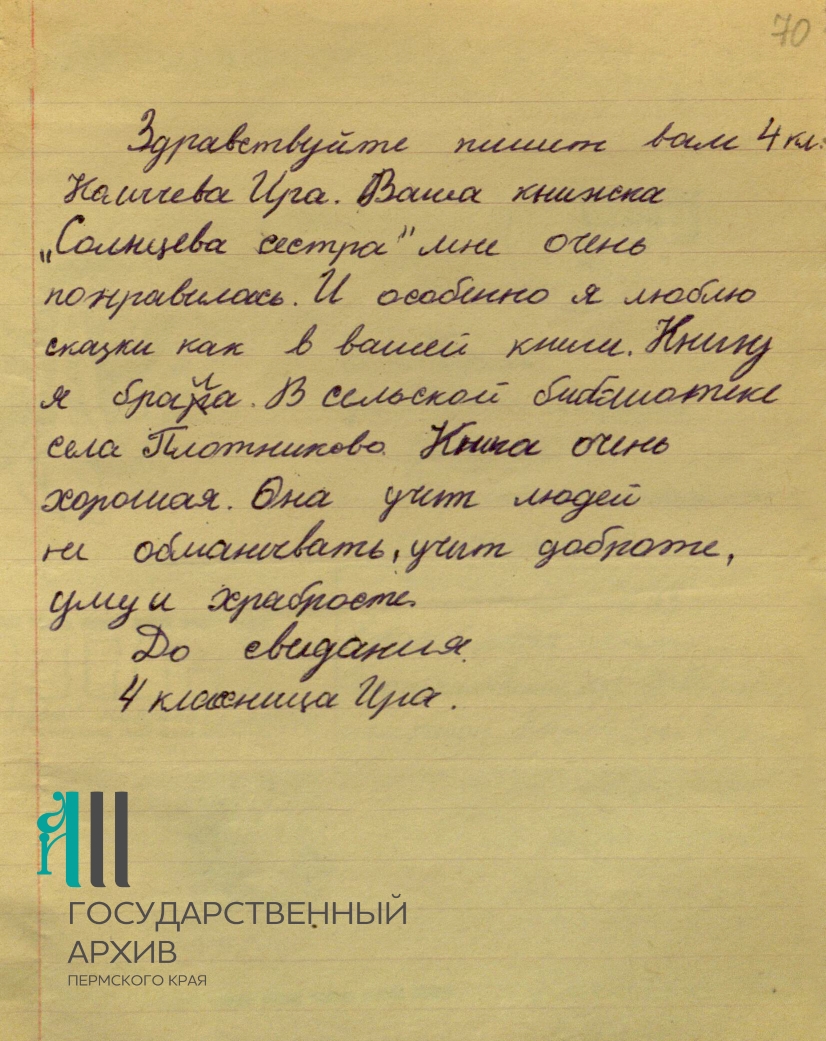 70
Здравствуйте пишит вам 4 кл.
Ира. Ваша книжска
„Солнцева сестра" мне очень
понравилась. И особенно я люблю
сказки как в вашей книги. Книгу
я брала. В сельской библиотеке
села Плотниково. Книга очень
хорошая. Она учит людей
не обманывать, учит доброте,
уму и храбросте.
До свидания.
4 классница Ира.
ГОСУДАРСТВЕННЫЙ
АРХИВ
ПЕРМСКОГО КРАЯ